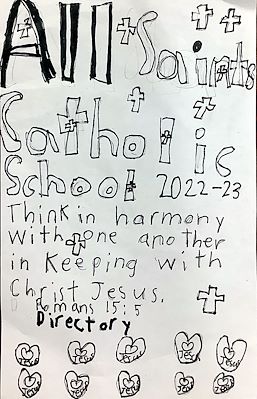 All Saints
Catholic
School 2022-23
Think in harmony
with one another
in Keeping with
Christ Jesus.
Romans 15:5
Directory
Jesus Jesus Jesus Jesus Jesus
Jesus Jesus Jesus Jesus Jesus